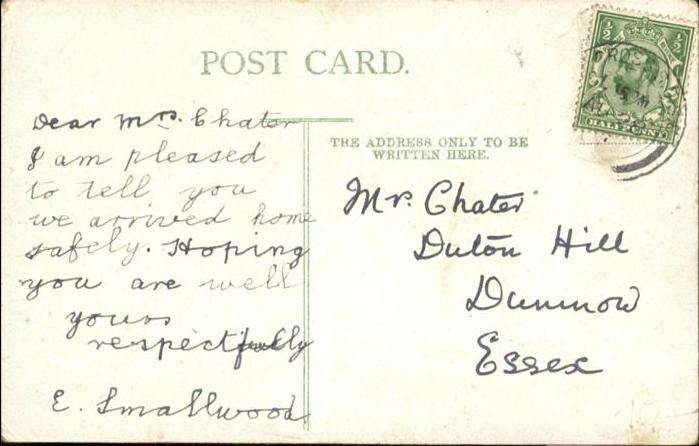 POST CARD.
THE ADDRESS ONLY TO BE
WRITTEN HERE.
½ ½
HALFPENNY
Dear Mrs. Chater
I am pleased
to tell you
we arrived home
safely. Hoping
you are well
yours
respectfully
E. Smallwood
Mr. Chater
Duton Hill
Dunmow
Essex